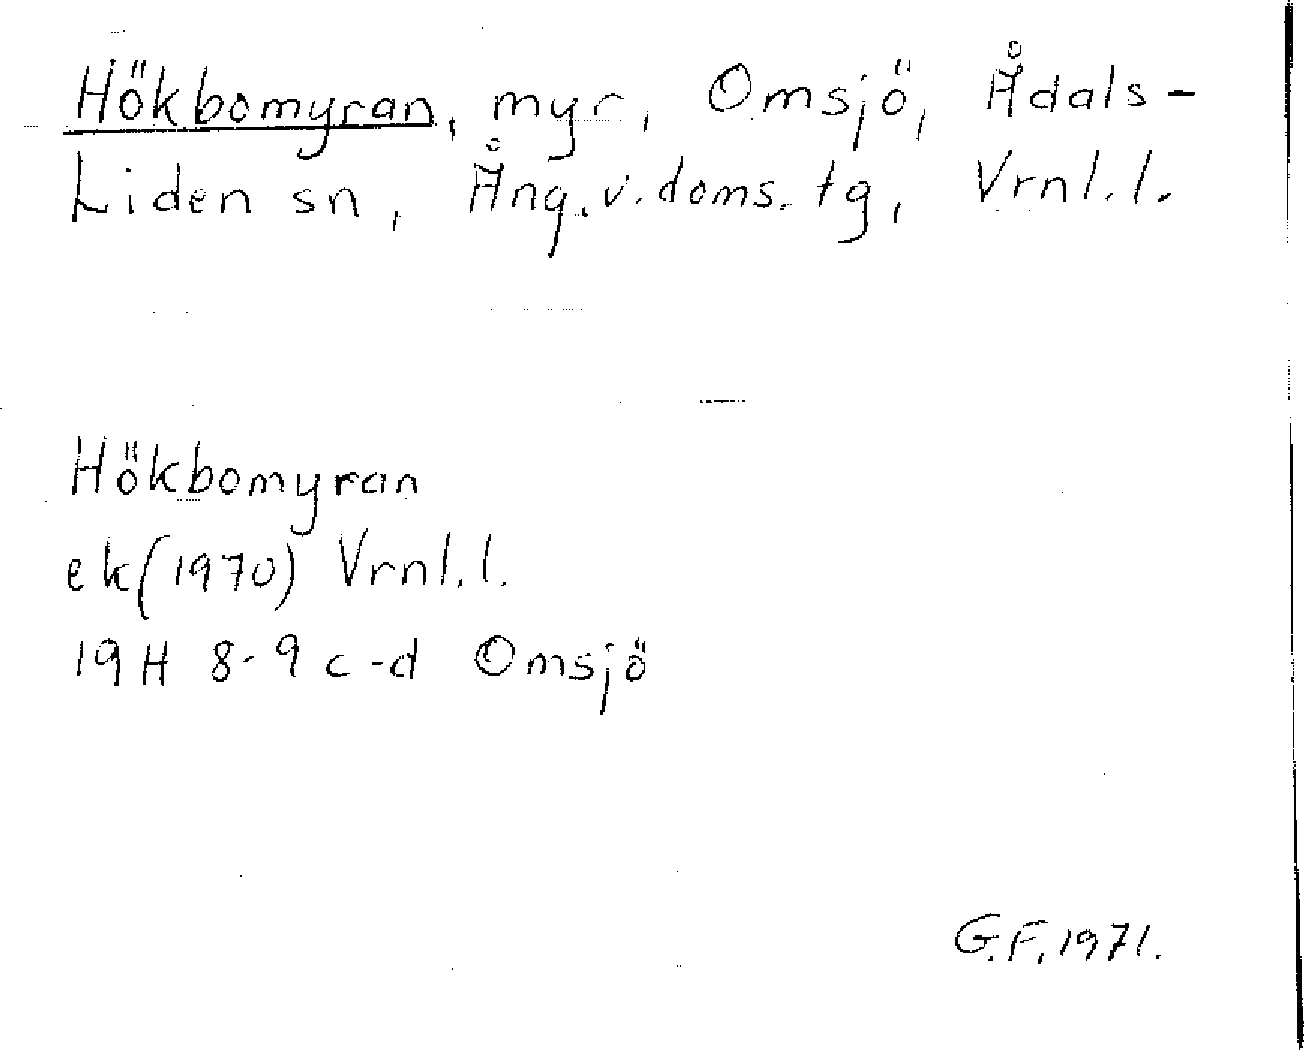 Hökbomyran, myr, Omsjö, Ådals-
Liden sn, Ång. v. doms. tg, Vrnl. l.
Hökbomyran
ek (1970) Vrnl. l.
19H 8-9 c-d Omsjö
G.F. 1971.